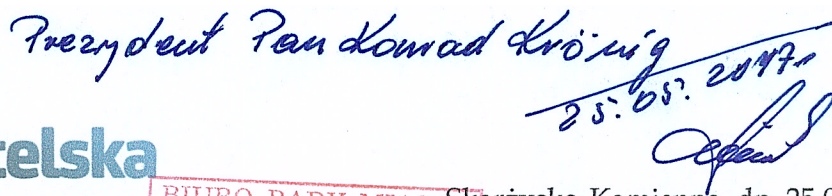 Prezydent Pan Konrad Krönig
25.05.2017r.
telska
BIURO RADY
Skarżysko-Kamienna, dn. 25.0